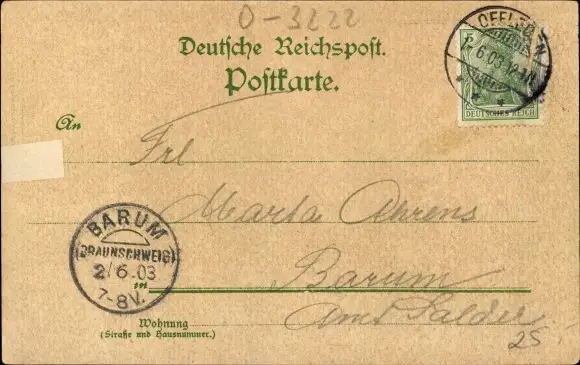 O-3222
Deutsche Reichspost.
Postkarte.
OFFLEBEN
6.03
DEUTSCHES REICH
An
Frl
Marta Ahrens
BARUM
(BRAUNSCHWEIG)
2/6.03
7-8V.
in
Barum
Amt Salder
Wohnung
(Straße und Hausnummer.)
25